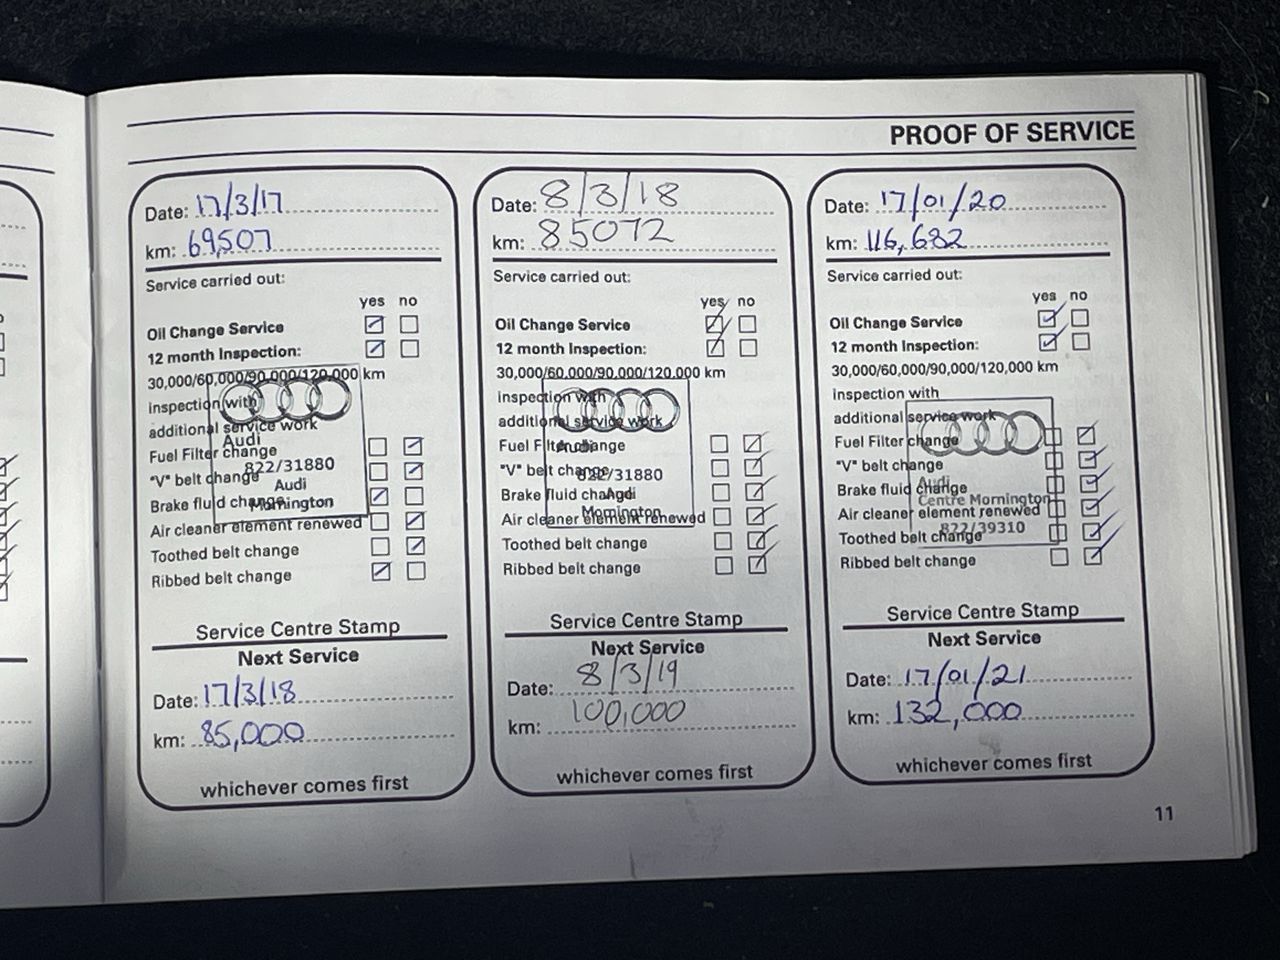 PROOF OF SERVICE
Date: 17/3/17
km: 69,507
Service carried out:
yes no
Oil Change Service
12 month Inspection:
30,000/60,000/90,000/120,000 km
inspection with
additional service work
Fuel Filter change
"V" belt change
Brake fluid change
Air cleaner element renewed
Toothed belt change
Ribbed belt change
Audi
822/31880
Audi
Mornington
Service Centre Stamp
Next Service
Date: 17/3/18
km: 85,000
whichever comes first
Date: 8/3/18
km: 85072
Service carried out:
yes no
Oil Change Service
12 month Inspection:
30,000/60,000/90,000/120,000 km
inspection with
additional service work
Fuel Filter change
"V" belt change
Brake fluid change
Air cleaner element renewed
Toothed belt change
Ribbed belt change
Audi
822/31880
Audi
Mornington
Service Centre Stamp
Next Service
Date: 8/3/19
km: 100,000
whichever comes first
Date: 17/01/20
km: 116,682
Service carried out:
yes no
Oil Change Service
12 month Inspection:
30,000/60,000/90,000/120,000 km
inspection with
additional service work
Fuel Filter change
"V" belt change
Brake fluid change
Air cleaner element renewed
Toothed belt change
Ribbed belt change
Audi
Centre Mornington
822/39310
Service Centre Stamp
Next Service
Date: 17/01/21
km: 132,000
whichever comes first
11